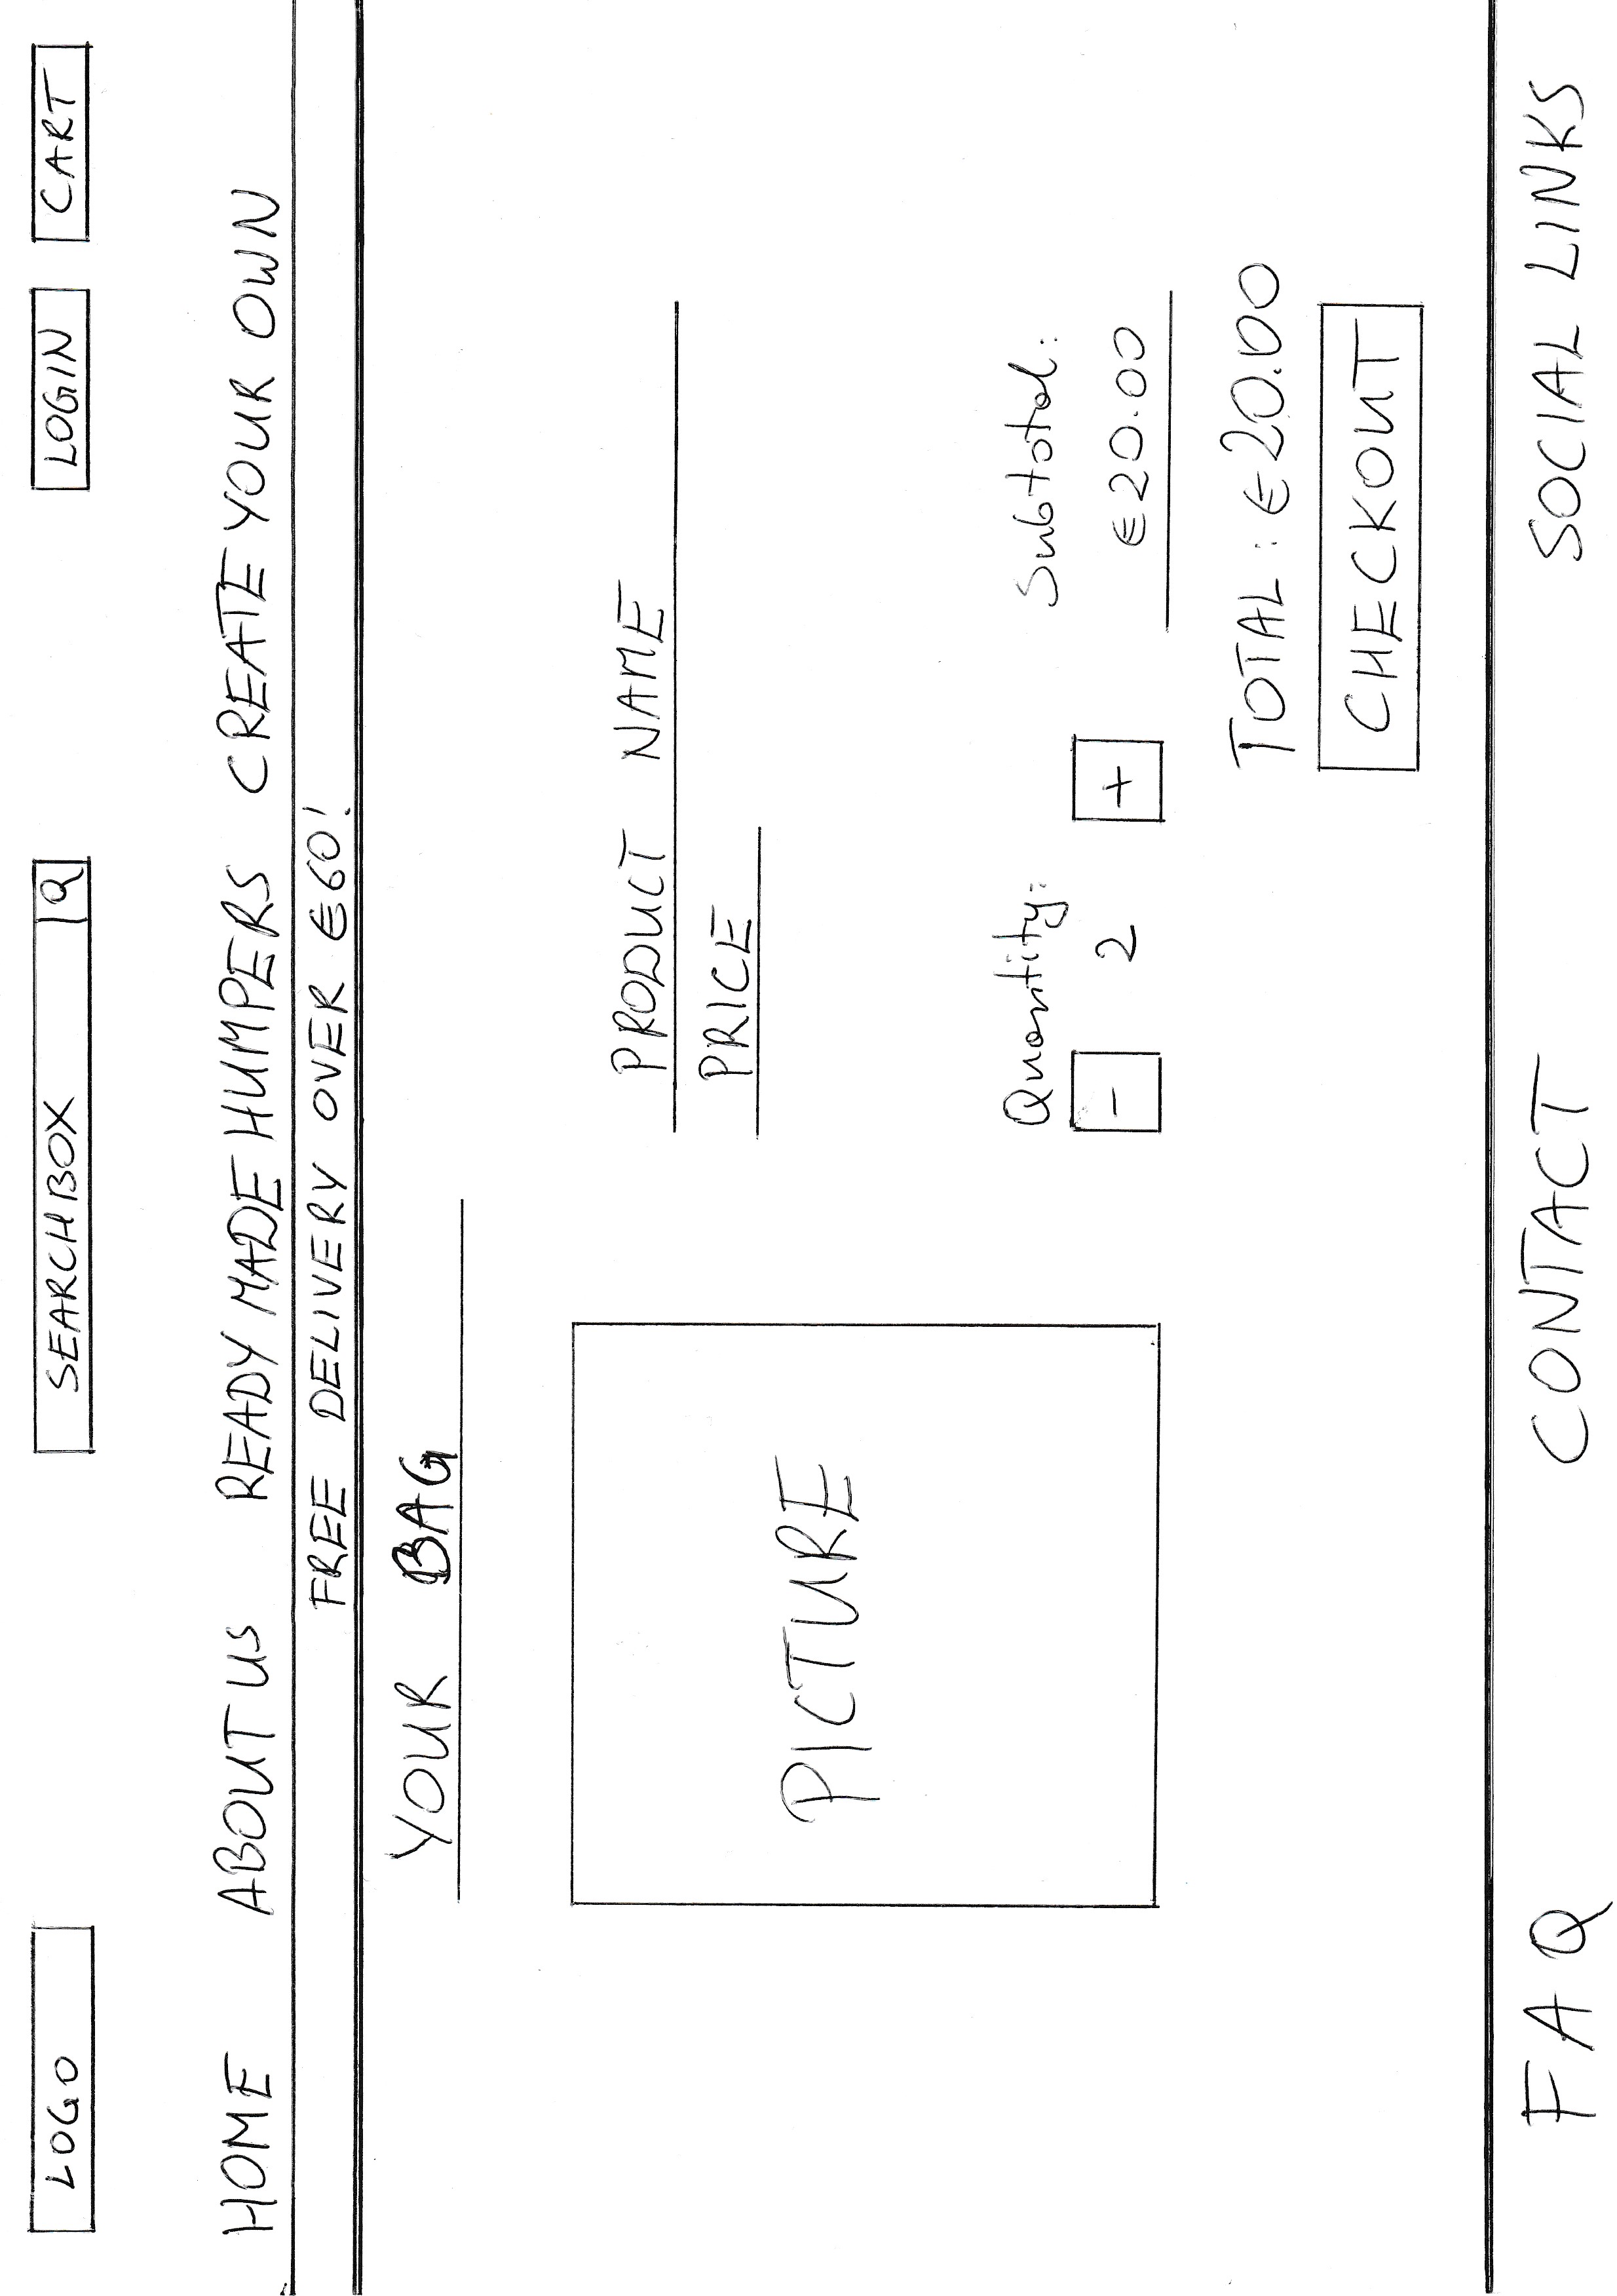 LOGO SEARCHBOX Q LOGIN CART
HOME ABOUT US READY MADE HUMPERS CREATE YOUR OWN
FREE DELIVERY OVER €60!
YOUR BAG
PRODUCT NAME
PRICE
PICTURE
Quantity: Subtotal:
- 2 + €20.00
TOTAL: €20.00
CHECKOUT
FAQ CONTACT SOCIAL LINKS